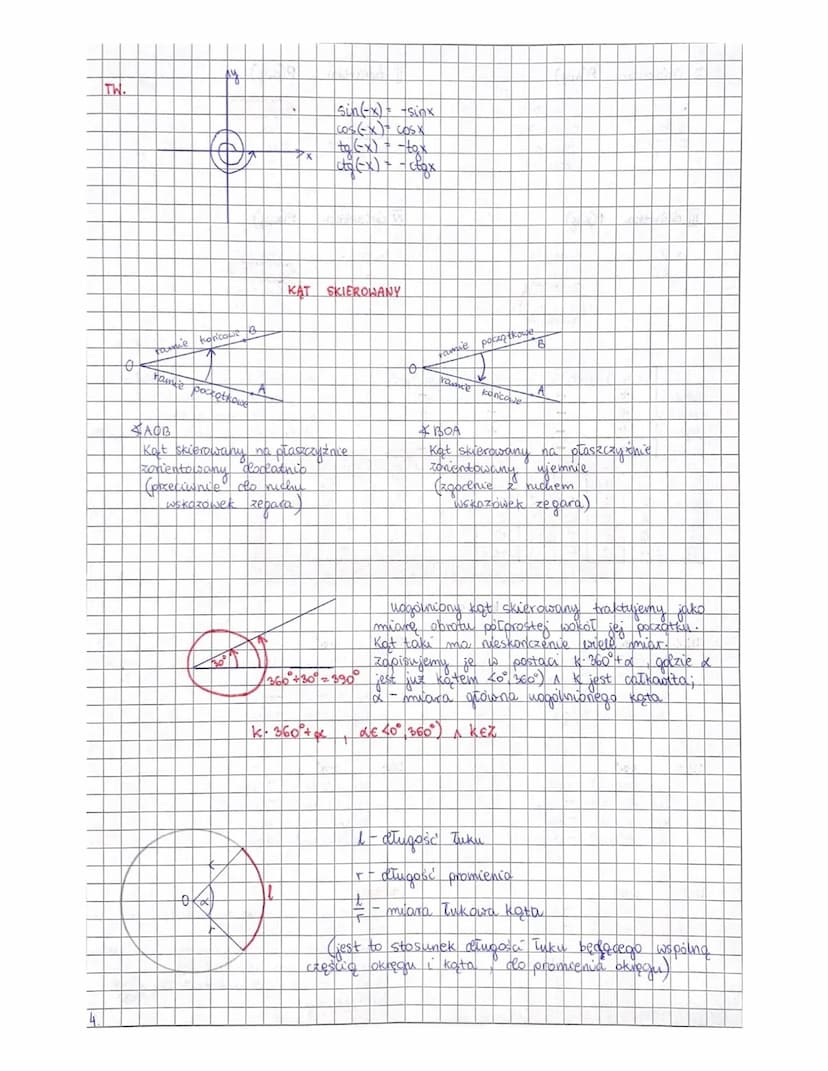 TW.
y
x
sin(-x) = -sinx
cos(-x) = cosx
tg(-x) = -tgx
ctg(-x) = -ctgx
KĄT SKIEROWANY
ramie końcowe B
O
ramie początkowe A
ramie początkowe B
O
ramie końcowe A
∡AOB
Kąt skierowany na płaszczyźnie
zorientowany dodatnio
(przeciwnie do ruchu
wskazówek zegara)
∡BOA
Kąt skierowany na płaszczyźnie
zorientowany ujemnie
(zgodnie z ruchem
wskazówek zegara)
uogólniony kąt skierowany traktujemy jako
miarę obrotu półprostej wokół jej początku.
Kąt taki ma nieskończenie wiele miar.
zapisujemy je w postaci k·360°+α, gdzie α
jest już kątem <0°,360°) ∧ k jest całkowita;
α - miara główna uogólnionego kąta
30°
360°+30°=390°
k·360°+α , α∈<0°,360°) ∧ k∈Z
l - długość łuku
r - długość promienia
l/r - miara łukowa kąta
(jest to stosunek długości łuku będącego wspólną
częścią okręgu i kąta , do promienia okręgu)
r
O α l
r
4.